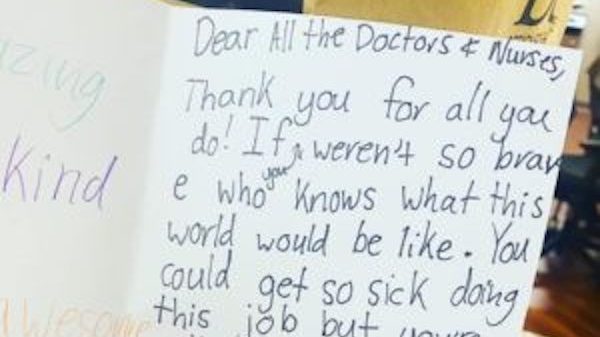 Dear All the Doctors & Nurses,
Thank you for all you
do! If you weren't so brav
e who knows what this
world would be like. You
could get so sick doing
this job but
kind